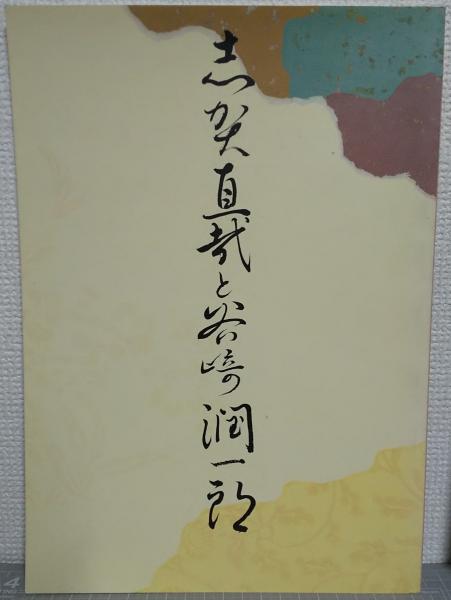 志賀直哉と谷崎潤一郎
4